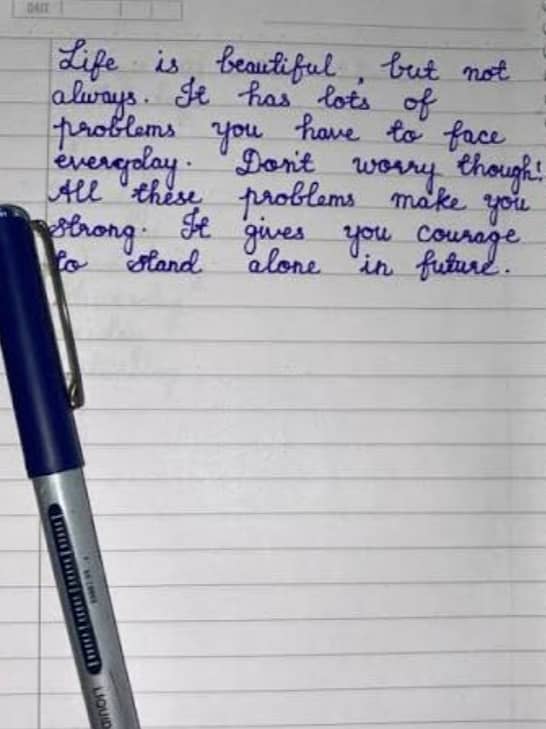 DATE
Life is beautiful, but not
always. It has lots of
problems you have to face
everyday. Don't worry though!
All these problems make you
strong. It gives you courage
to stand alone in future.